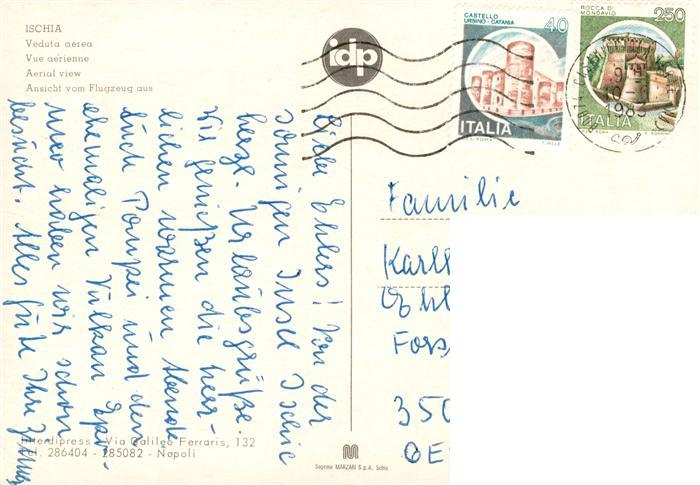 ISCHIA
Veduta aerea
Vue aérienne
Aerial view
Ansicht vom Flugzeug aus
idp
CASTELLO
URSINO - CATANIA
40
ITALIA
ROCCA DI
MONDAVIO
250
ITALIA
1983
Liebe Ehlers! Von der
sonnigen Insel Ischia
herzl. Urlaubsgrüße.
Wir genießen die herr-
lichen warmen Abende
Auch Pompei und den
ehemaligen Vulkan Epo-
meo haben wir schon
besucht. Alles Gute Ihre
Familie
Karlh
Ehl
Fors
350
OE
Interdipress - Via Galileo Ferraris, 132
Tel. 286404 - 285082 - Napoli
Sagoma MARZARI S.p.A. Schio